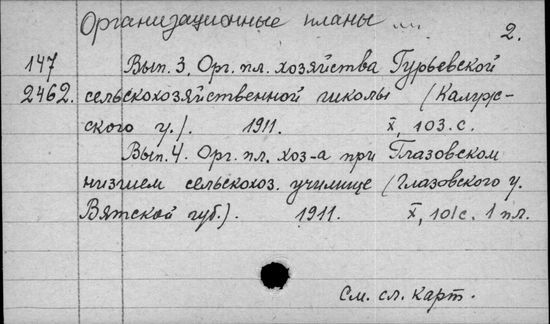 Организационные планы ... 2.
147 Вып. 3. Орг. пл. хозяйства Гурьевской
2462. сельскохозяйственной школы (Калуж-
ского у.). 1911. X, 103 с.
Вып. 4. Орг. пл. хоз-а при Глазовском
низшем сельскохоз. училище (Глазовского у.
Вятской губ.). 1911. X, 101 с. 1 пл.
См. сл. карт.